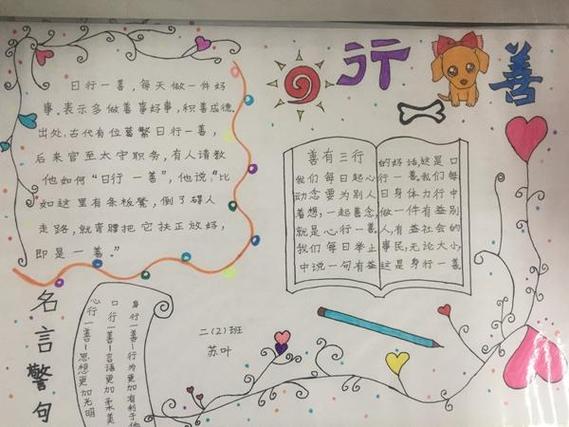 行善
日行一善，每天做一件好
事，表示多做善事好事，积善成德
出处：古代有位葛繁日行一善，
后来官至太守职务，有人请教
他如何“日行一善”，他说：“比
如这里有条板凳，倒了碍人
走路，就弯腰把它扶正放好，
即是一善。”
善有三行
我们每日起心
动念要为别人
着想，一起善念，
就是心行一善。
我们每日举止
中说一句有益
的好话，这是口
行一善，我们每
日身体力行中
做一件有益别
人，有益社会的
事民，无论大小，
这是身行一善
名言警句
身行一善—行为更加有利于他
口行一善—言语更加柔美
心行一善—思想更加光明
二（2）班
苏叶